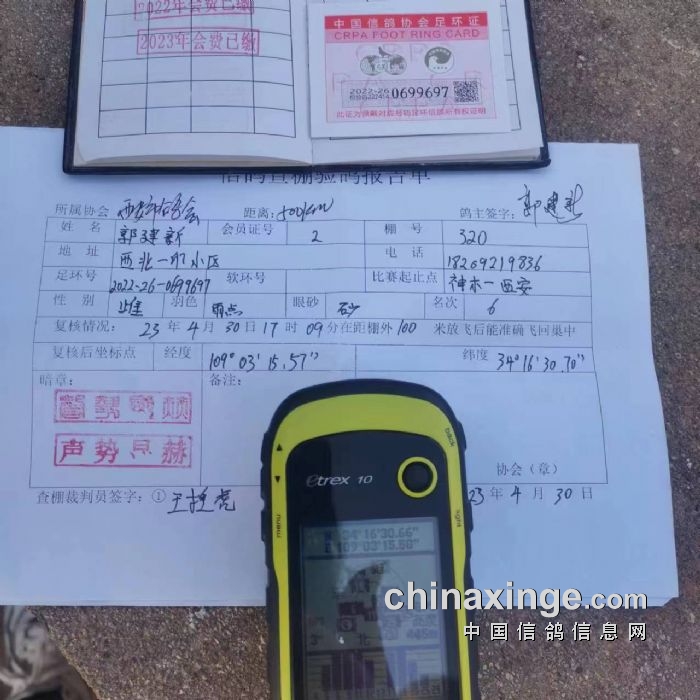 2022年会费已缴
2023年会费已缴
中国信鸽协会足环证
CRPA FOOT RING CARD
2022-26
0699697
此证为佩戴对应号码足环信鸽所有权证明
信鸽查棚验鸽报告单
所属协会 距离:500km 鸽主签字:郭建新
姓名 郭建新 会员证号 2 棚号 320
地址 西北一所小区 电话 18209219836
足环号 2022-26-0699697 软环号 比赛起止点 神木一西安
性别 雌 羽色 雨点 眼砂 砂 名次 6
复核情况: 23 年 4 月 30 日 17 时 09 分在距棚外 100 米放飞后能准确飞回巢中
复核后坐标点 经度 109° 03' 15.57" 纬度 34°16'30.70"
暗章: 备注:
声势显赫
协会(章)
查棚裁判员签字:① 23 年 4 月 30 日
etrex 10
back
menu
light
N 34°16'30.66"
E 109°03'15.60"
chinaxinge.com
中国信鸽信息网